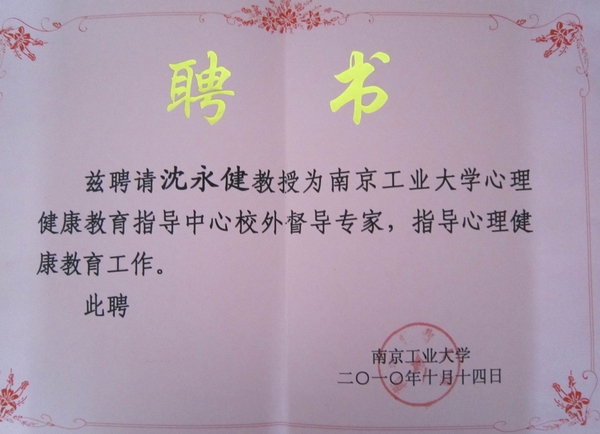 聘 书
兹聘请沈永健教授为南京工业大学心理
健康教育指导中心校外督导专家，指导心理健
康教育工作。
此聘
南京工业大学
二〇一〇年十月十四日